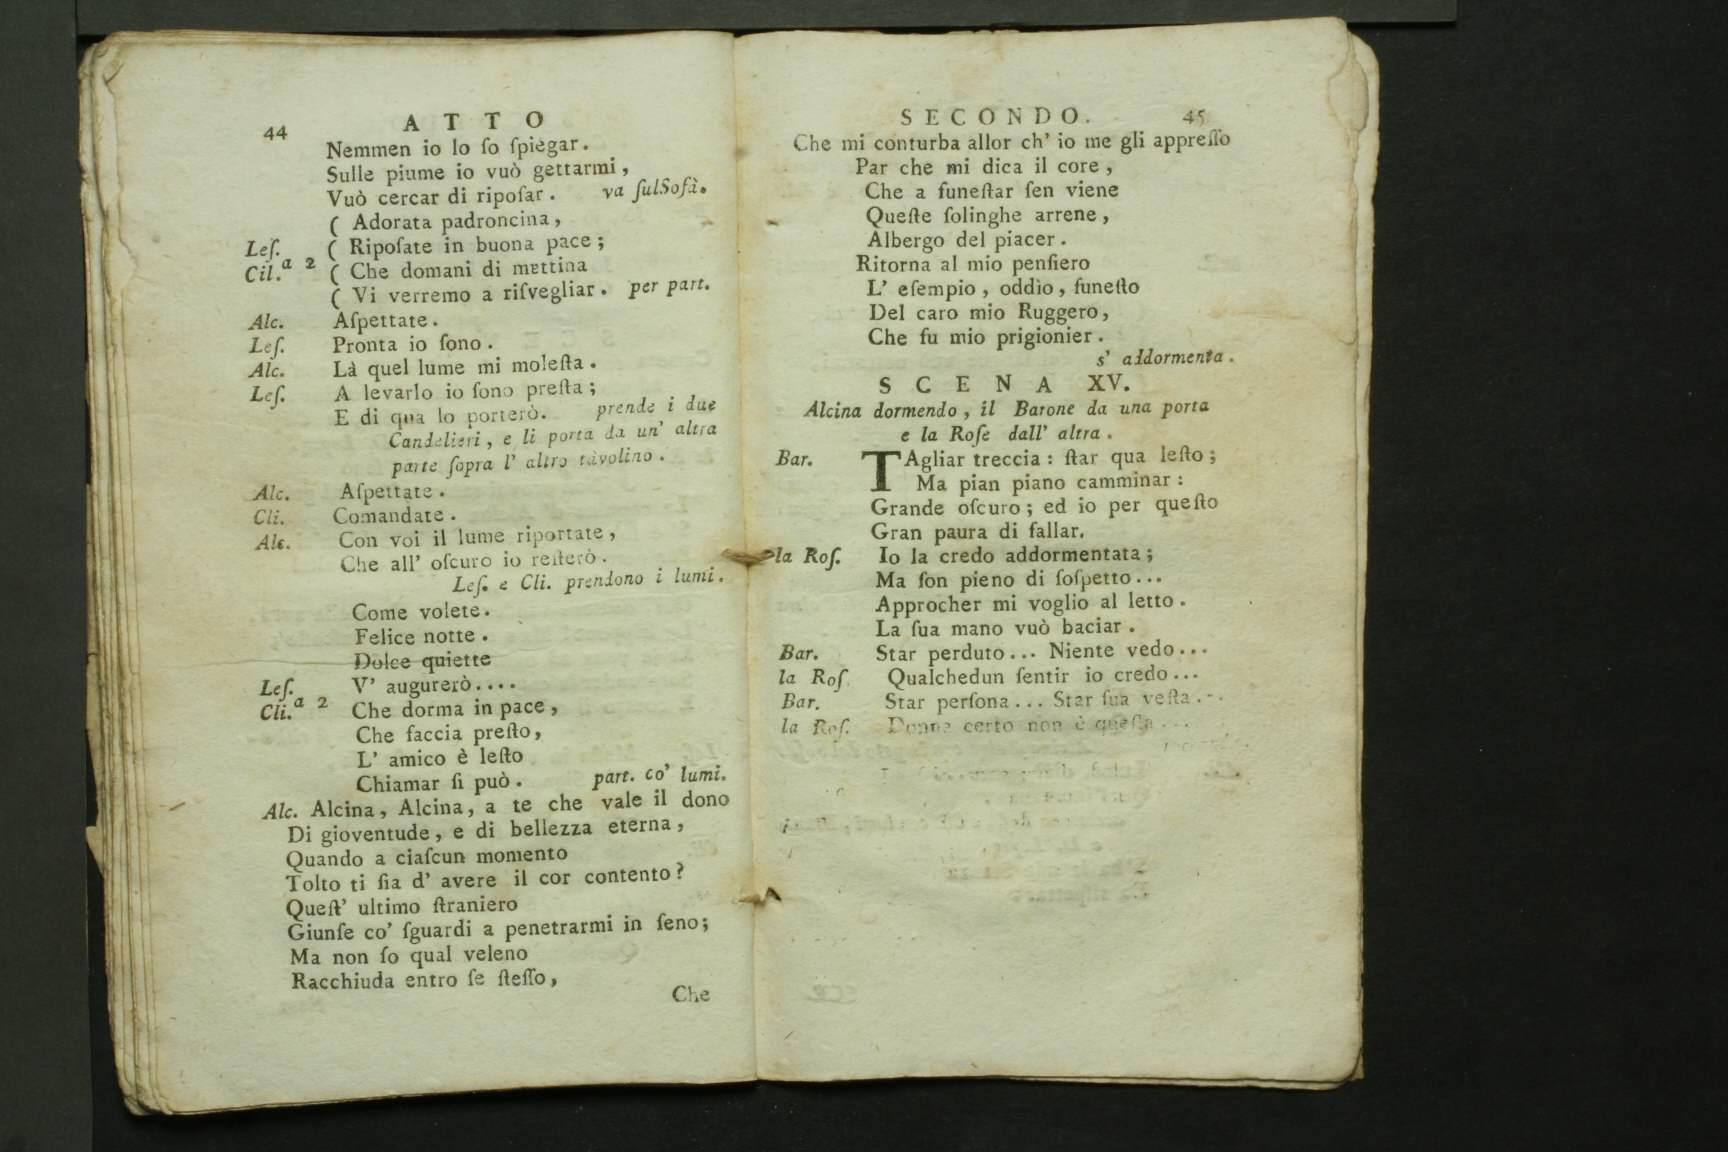 44 A T T O
Nemmen io lo ſo ſpiegar.
Sulle piume io vuò gettarmi,
Vuò cercar di ripoſar. va ſulSofà.
( Adorata padroncina,
Leſ. ( Ripoſate in buona pace;
Cil.a 2 ( Che domani di mattina
( Vi verremo a riſvegliar. per part.
Alc. Aſpettate.
Leſ. Pronta io ſono.
Alc. Là quel lume mi moleſta.
Leſ. A levarlo io ſono preſta;
E di qua lo porterò. prende i due
Candelieri, e li porta da un' altra
parte ſopra l' altro tavolino.
Alc. Aſpettate.
Cli. Comandate.
Alc. Con voi il lume riportate,
Che all' oſcuro io reſterò.
Leſ. e Cli. prendono i lumi.
Come volete.
Felice notte.
Dolce quiette
Leſ. V' augurerò....
Cli.a 2 Che dorma in pace,
Che faccia preſto,
L' amico è leſto
Chiamar ſi può. part. co' lumi.
Alc. Alcina, Alcina, a te che vale il dono
Di gioventude, e di bellezza eterna,
Quando a ciaſcun momento
Tolto ti ſia d' avere il cor contento?
Queſt' ultimo ſtraniero
Giunſe co' ſguardi a penetrarmi in ſeno;
Ma non ſo qual veleno
Racchiuda entro ſe ſteſſo,
Che
S E C O N D O. 45
Che mi conturba allor ch' io me gli appreſſo
Par che mi dica il core,
Che a funeſtar ſen viene
Queſte ſolinghe arrene,
Albergo del piacer.
Ritorna al mio penſiero
L' eſempio, oddìo, funeſto
Del caro mio Ruggero,
Che fu mio prigionier.
s' addormenta.
S C E N A XV.
Alcina dormendo, il Barone da una porta
e la Roſe dall' altra.
Bar. TAgliar treccia: ſtar qua leſto;
Ma pian piano camminar:
Grande oſcuro; ed io per queſto
Gran paura di fallar.
la Roſ. Io la credo addormentata;
Ma ſon pieno di ſoſpetto...
Approcher mi voglio al letto.
La ſua mano vuò baciar.
Bar. Star perduto... Niente vedo...
la Roſ Qualchedun ſentir io credo...
Bar. Star perſona... Star ſua veſta...
la Roſ. Donna certo non è queſta...